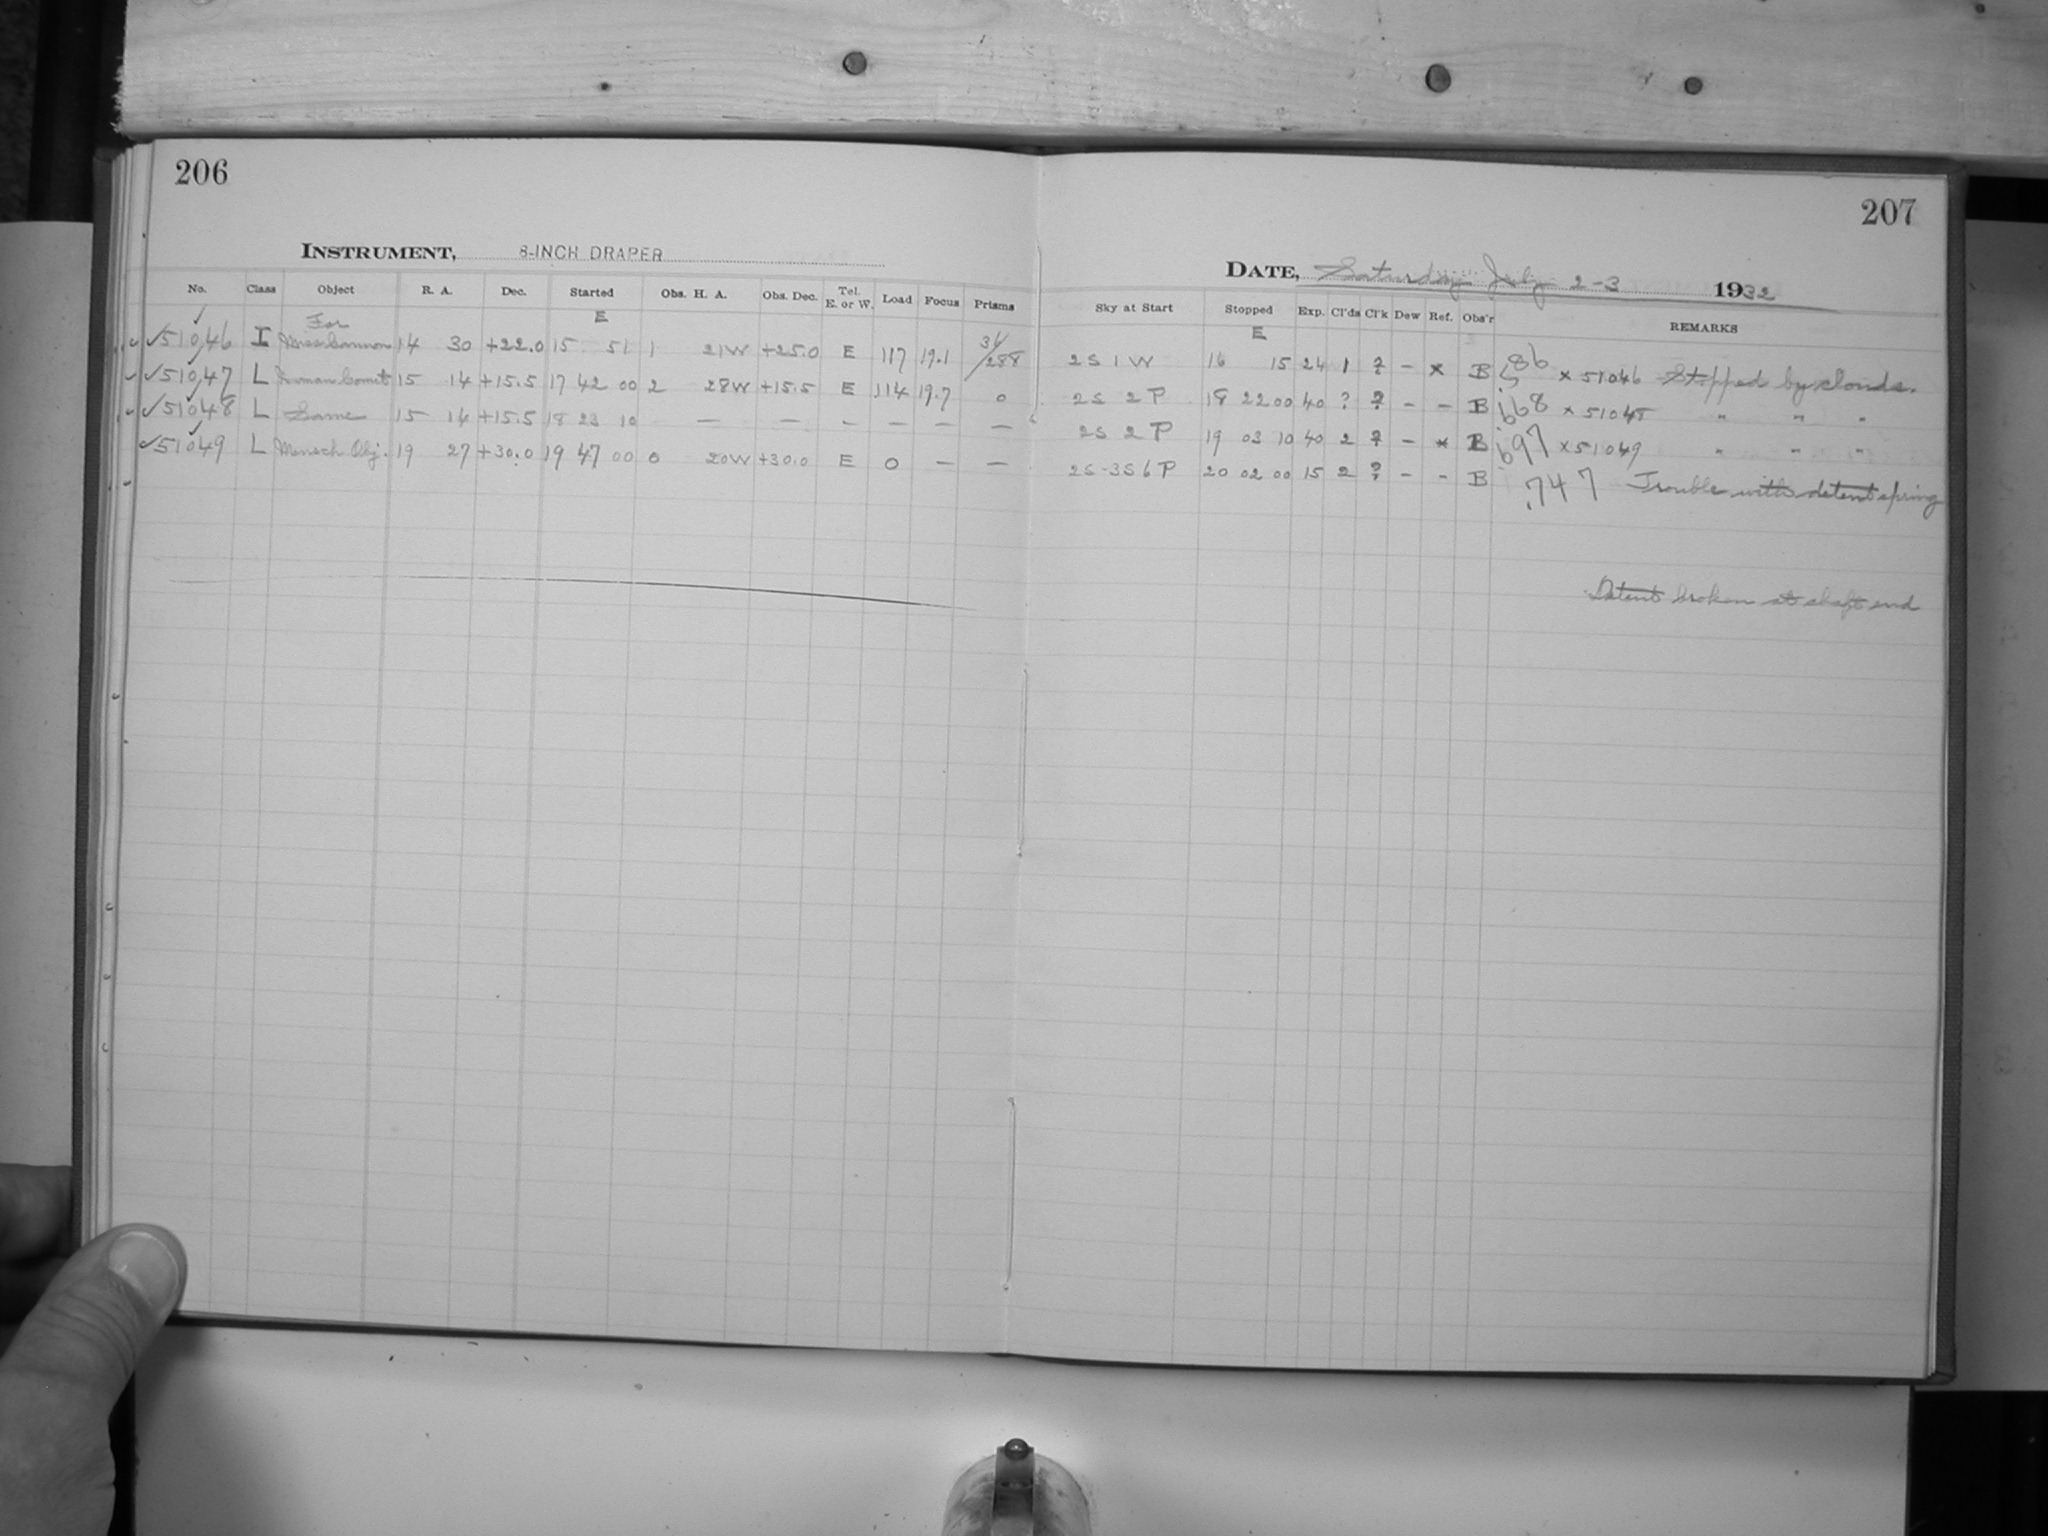 206
207
INSTRUMENT, 8-INCH DRAPER
DATE, Saturday July 2-3 1932
No. Class Object R. A. Dec. Started Obs. H. A. Obs. Dec. Tel. E. or W. Load Focus Prisms Sky at Start Stopped Exp. Cl'ds Cl'k Dew Ref. Obs'r REMARKS
E E
✓51046 I For Miss Cannon 14 30 +22.0 15 51 1 21W +25.0 E 117 19.1 2S 1 W 16 15 24 1 ? - * B .586 × 51046 Stopped by clouds.
✓51047 L Comet 15 14 +15.5 17 42 00 2 28W +15.5 E 114 19.7 0 2S 2 P 18 22 00 40 ? ? - - B .668 × 51048 " " "
✓51048 L Same 15 14 +15.5 18 23 10 — — - — — — 2S 2 P 19 03 10 40 2 ? - * B .697 × 51049 " " "
✓51049 L Obj. 19 27 +30.0 19 47 00 0 20W +30.0 E 0 — — 2S-3S 6 P 20 02 00 15 2 ? - - B .747 Trouble with detent spring
Detent broken at shaft end